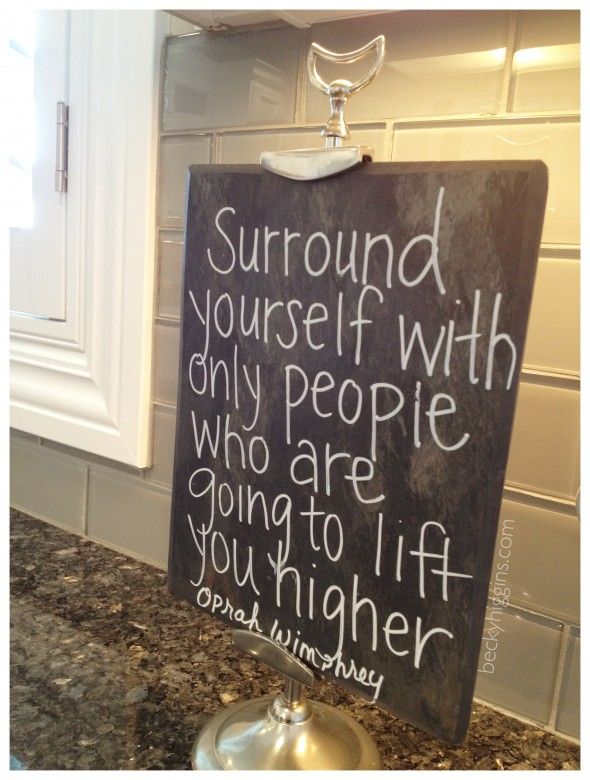 Surround
yourself with
only people
who are
going to lift
you higher
Oprah Wimphrey
beckyhiggins.com